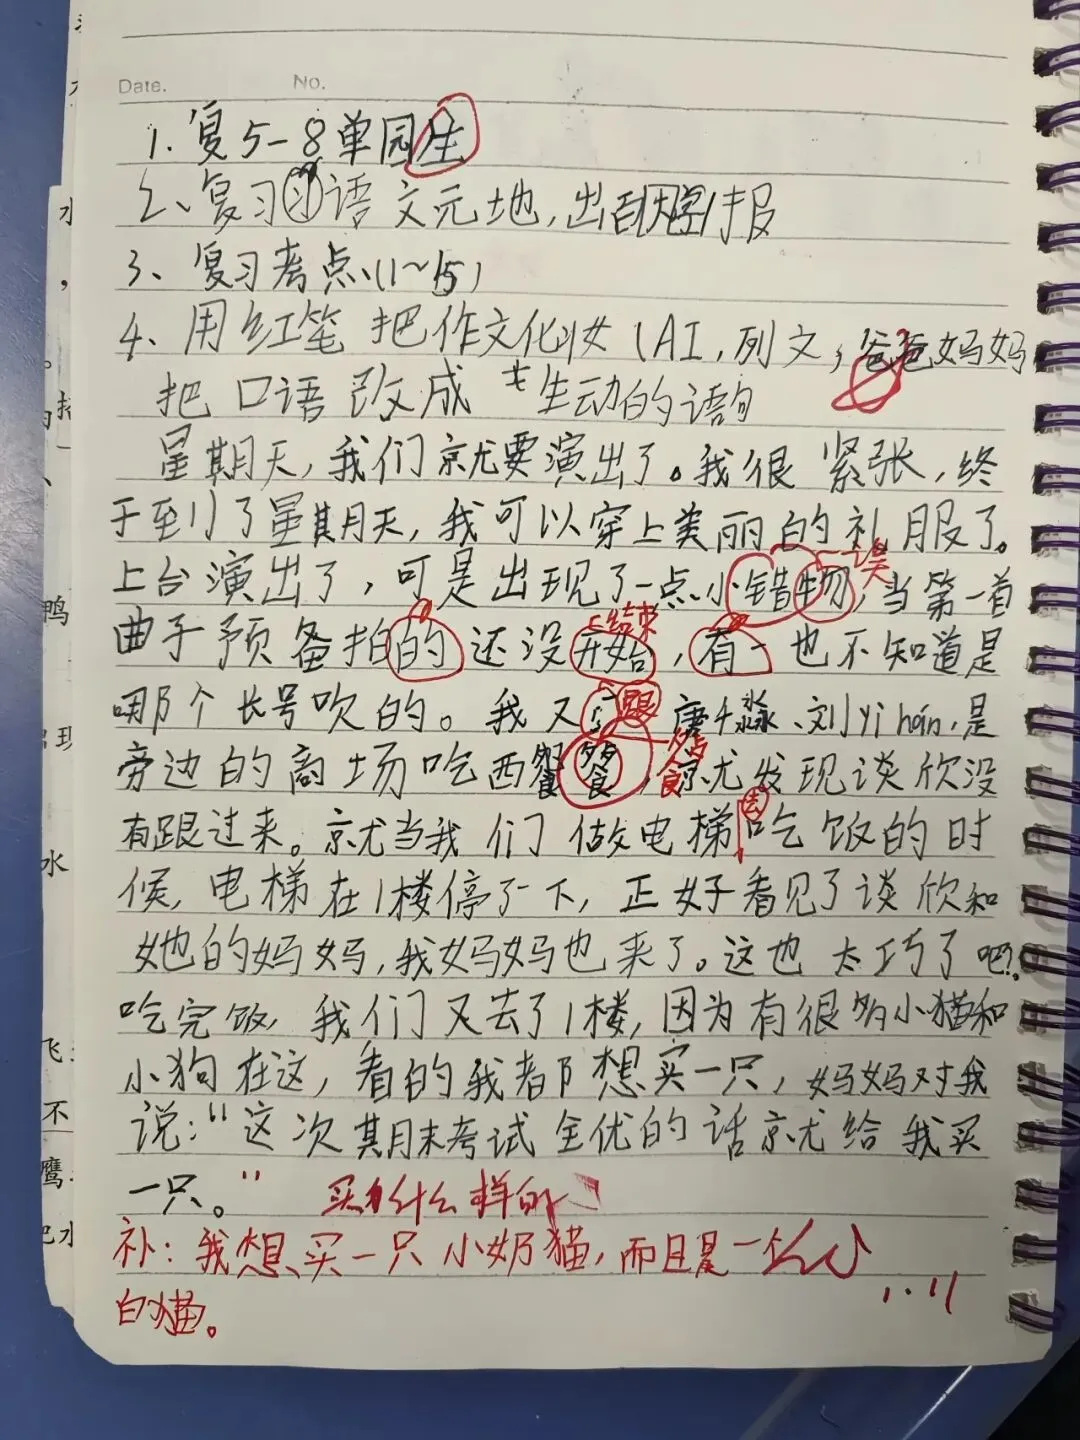 Date. No.
1. 复5-8单园生
2、复习习语文元地,出百伏学报
3、复习考点(1~15)
4、用红笔把作文化妆(AI,列文,爸爸妈妈
把口语改成生动的语句
星期天,我们就要演出了。我很紧张,终
于到了星期天,我可以穿上美丽的礼服了。
上台演出了,可是出现了一点小错物,当第一首
误
曲子预备拍的还没开始,有一也不知道是
结束
哪个长号吹的。我又跟唐千淼、刘yi hán,是
旁边的商场吃西餐,就发现谈欣没
餐
有跟过来。就当我们做电梯去吃饭的时
候,电梯在1楼停了一下,正好看见了谈欣和
她的妈妈,我妈妈也来了。这也太巧了吧?
吃完饭,我们又去了1楼,因为有很多小猫和
小狗在这,看的我都想买一只,妈妈对我
说:“这次期末考试全优的话就给我买
一只。” 买个什么样的
补:我想买一只小奶猫,而且是一个
1.11
白猫。
水
,
。
鸭
现
水
飞
不
鹰
把水